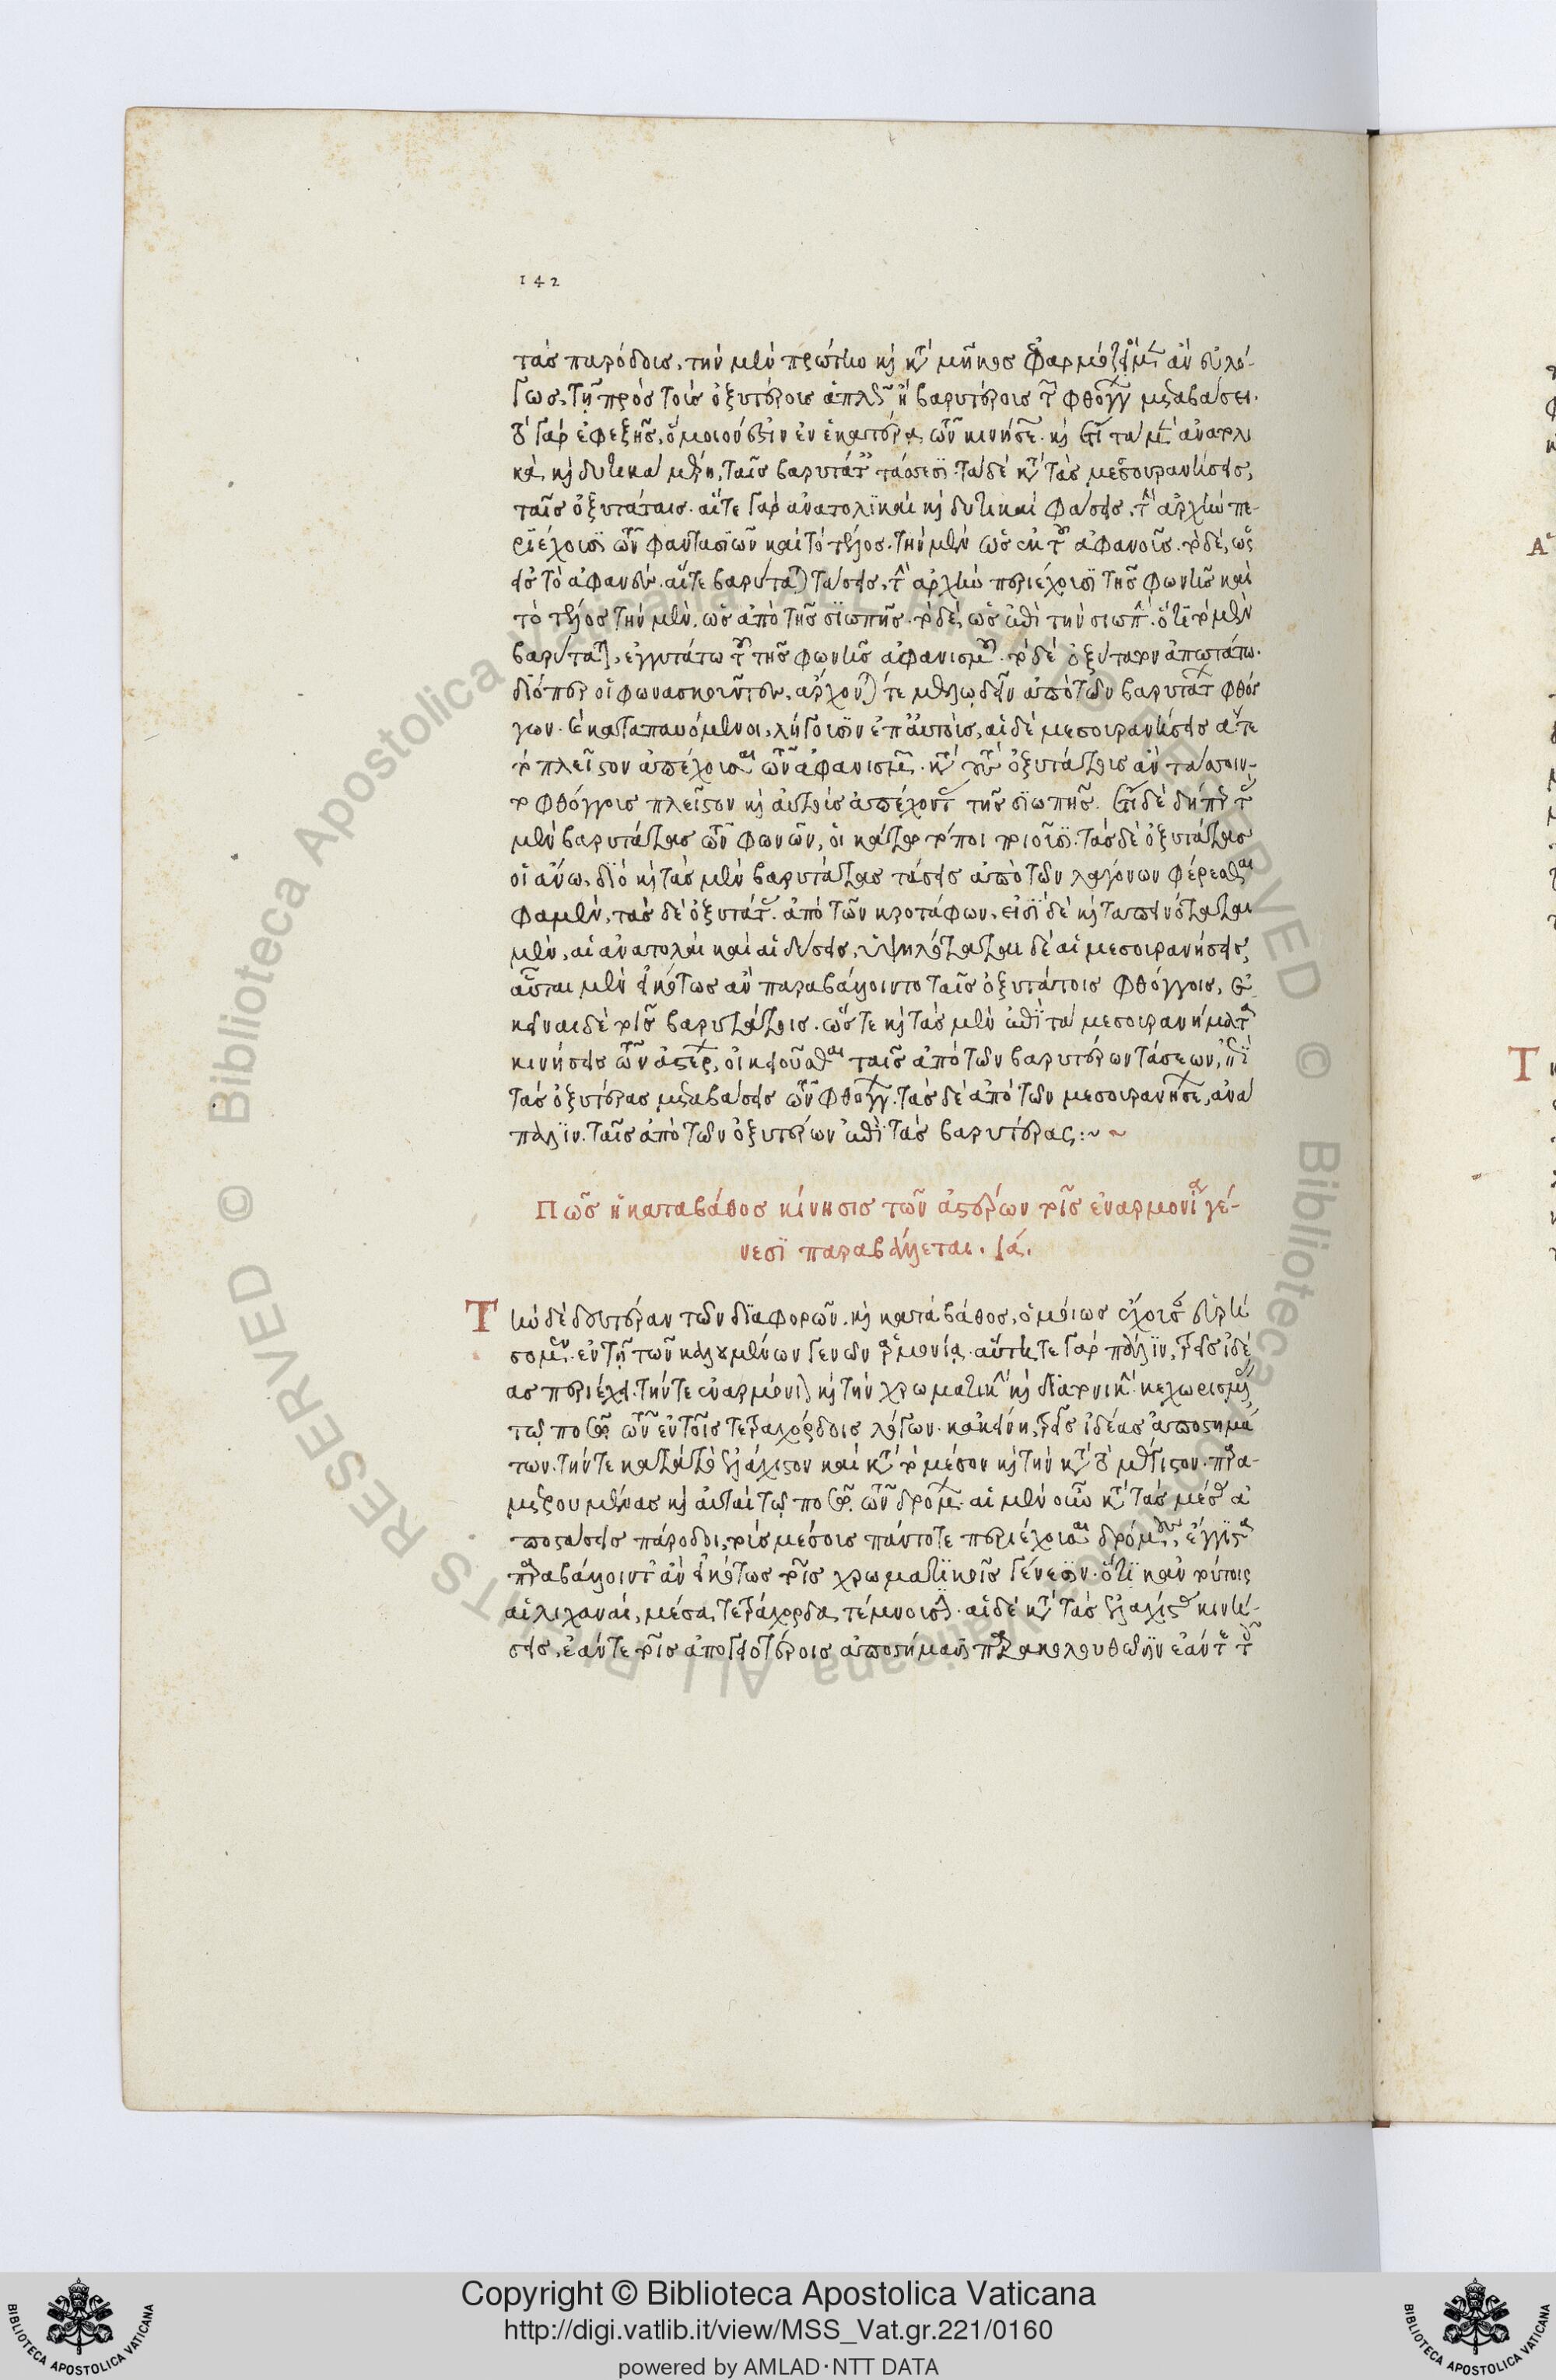 142
τὰς παρόδους. τὴν μὲν πρώτην καὶ κατὰ μῆκος ἐφαρμόζομεν ἂν εὐλό-
γως, τῇ πρὸς τοὺς ὀξυτέρους ἁπλῶς ἢ βαρυτέρους τῶν φθόγγων μεταβάσει.
τὸ γὰρ ἐφεξῆς, ὅμοιόν ἐστιν ἐν ἑκατέρᾳ τῶν κινήσεων. καὶ ἔτι τὰ μὲν ἀνατολι
κὰ καὶ δυτικὰ μέρη, ταῖς βαρυτάταις τάσεσι. τὰ δὲ κατὰ τὰς μεσουρανήσεις,
ταῖς ὀξυτάταις. αἵ τε γὰρ ἀνατολικαὶ καὶ δυτικαὶ φάσεις, τὴν ἀρχὴν πε-
ριέχουσι τῶν φαντασιῶν καὶ τὸ τέλος. τὴν μὲν ὡς ἐκ τοῦ ἀφανοῦς. τὸ δέ, ὡς
εἰς τὸ ἀφανές. αἵ τε βαρύταται τάσεις, τὴν ἀρχὴν περιέχουσι τῆς φωνῆς καὶ
τὸ τέλος τὴν μὲν, ὡς ἀπὸ τῆς σιωπῆς. τὸ δέ, ὡς ἐπὶ τὴν σιωπήν. ὅτι τὸ μὲν
βαρύτατον, ἐγγυτάτω τοῦ τῆς φωνῆς ἀφανισμοῦ. τὸ δὲ ὀξύτατον ἀπωτάτω.
διόπερ οἱ φωνασκοῦντες, ἄρχονταί τε μελῳδεῖν ἀπὸ τῶν βαρυτάτων φθόγ
γων. καὶ καταπαυόμενοι, λήγουσιν ἐπ' αὐτούς, αἱ δὲ μεσουρανήσεις ἅτε
τὸ πλεῖστον ἀπέχουσαι τῶν ἀφανισμῶν. κατὰ τοὺς ὀξυτάτους ἂν τάσσοιν-
το φθόγγους πλεῖστον καὶ αὐτοὺς ἀπέχοντας τῆς σιωπῆς. ἔτι δὲ δήπου τὰς
μὲν βαρυτάτας τῶν φωνῶν, οἱ κάτω τόποι ποιοῦσι. τὰς δὲ ὀξυτάτας
οἱ ἄνω, διὸ καὶ τὰς μὲν βαρυτάτας τάσεις ἀπὸ τῶν λαγόνων φέρεσθαι
φαμὲν, τὰς δὲ ὀξυτάτας ἀπὸ τῶν κροτάφων. εἰσὶ δὲ καὶ ταπεινόταται
μὲν, αἱ ἀνατολαὶ καὶ αἱ δύσεις, ὑψηλόταται δὲ αἱ μεσουρανήσεις,
αὗται μὲν εἰκότως ἂν παραβάλλοιντο ταῖς ὀξυτάτοις φθόγγοις, ἐ
κεῖναι δὲ τοῖς βαρυτάτοις. ὥστε καὶ τὰς μὲν ἐπὶ τὰ μεσουρανήματα
κινήσεις τῶν ἀστέρων, οἰκειοῦσθαι ταῖς ἀπὸ τῶν βαρυτέρων τάσεων, ἐπὶ
τὰς ὀξυτέρας μεταβάσεις τῶν φθόγγων. τὰς δὲ ἀπὸ τῶν μεσουρανήσεων, ἀνά
παλιν. ταῖς ἀπὸ τῶν ὀξυτέρων ἐπὶ τὰς βαρυτέρας:~ ~
Πῶς ἡ κατὰ βάθος κίνησις τῶν ἀστέρων τοῖς ἐν ἁρμονίᾳ γέ-
νεσι παραβάλλεται. ια.
Τὴν δὲ δευτέραν τῶν διαφορῶν. καὶ κατὰ βάθος, ὁμοίως ἔχουσαν εὑρή
σομεν. ἐν τῇ τῶν καλουμένων γενῶν ἁρμονίᾳ. αὕτη τε γὰρ πάλιν, τρεῖς ἰδέ
ας περιέχει. τήν τε ἐναρμόνιον καὶ τὴν χρωματικὴν καὶ διατονικήν. κεχωρισμένας
τῷ ποσῷ τῶν ἐν τοῖς τετραχόρδοις λόγων. κἀκείνη, τρεῖς ἰδέας ἀποστημά
των. τήν τε κατὰ τὸ ἐλάχιστον καὶ κατὰ τὸ μέσον καὶ τὴν κατὰ τὸ μέγιστον. παρα-
μετρουμένας καὶ αὐτὰς τῷ ποσῷ τῶν δρόμων. αἱ μὲν οὖν κατὰ τὰς μέσας ἀ
ποστάσεις πάροδοι, τοὺς μέσους πάντοτε περιέχουσαι δρόμους, ἔγγιστα
παραβάλλοιντ' ἂν εἰκότως τοῖς χρωματικοῖς γένεσιν. ὅτι κἀν τούτοις
αἱ λιχαναί, μέσα τετράχορδα τέμνουσιν. αἱ δὲ κατὰ τὰς ἐλαχίστας κινή-
σεις, ἐάν τε τοῖς ἀπογειοτέροις ἀποστήμασι παρακολουθῶσιν ἐάν τε τοῖς
Copyright © Biblioteca Apostolica Vaticana
http://digi.vatlib.it/view/MSS_Vat.gr.221/0160
powered by AMLAD·NTT DATA